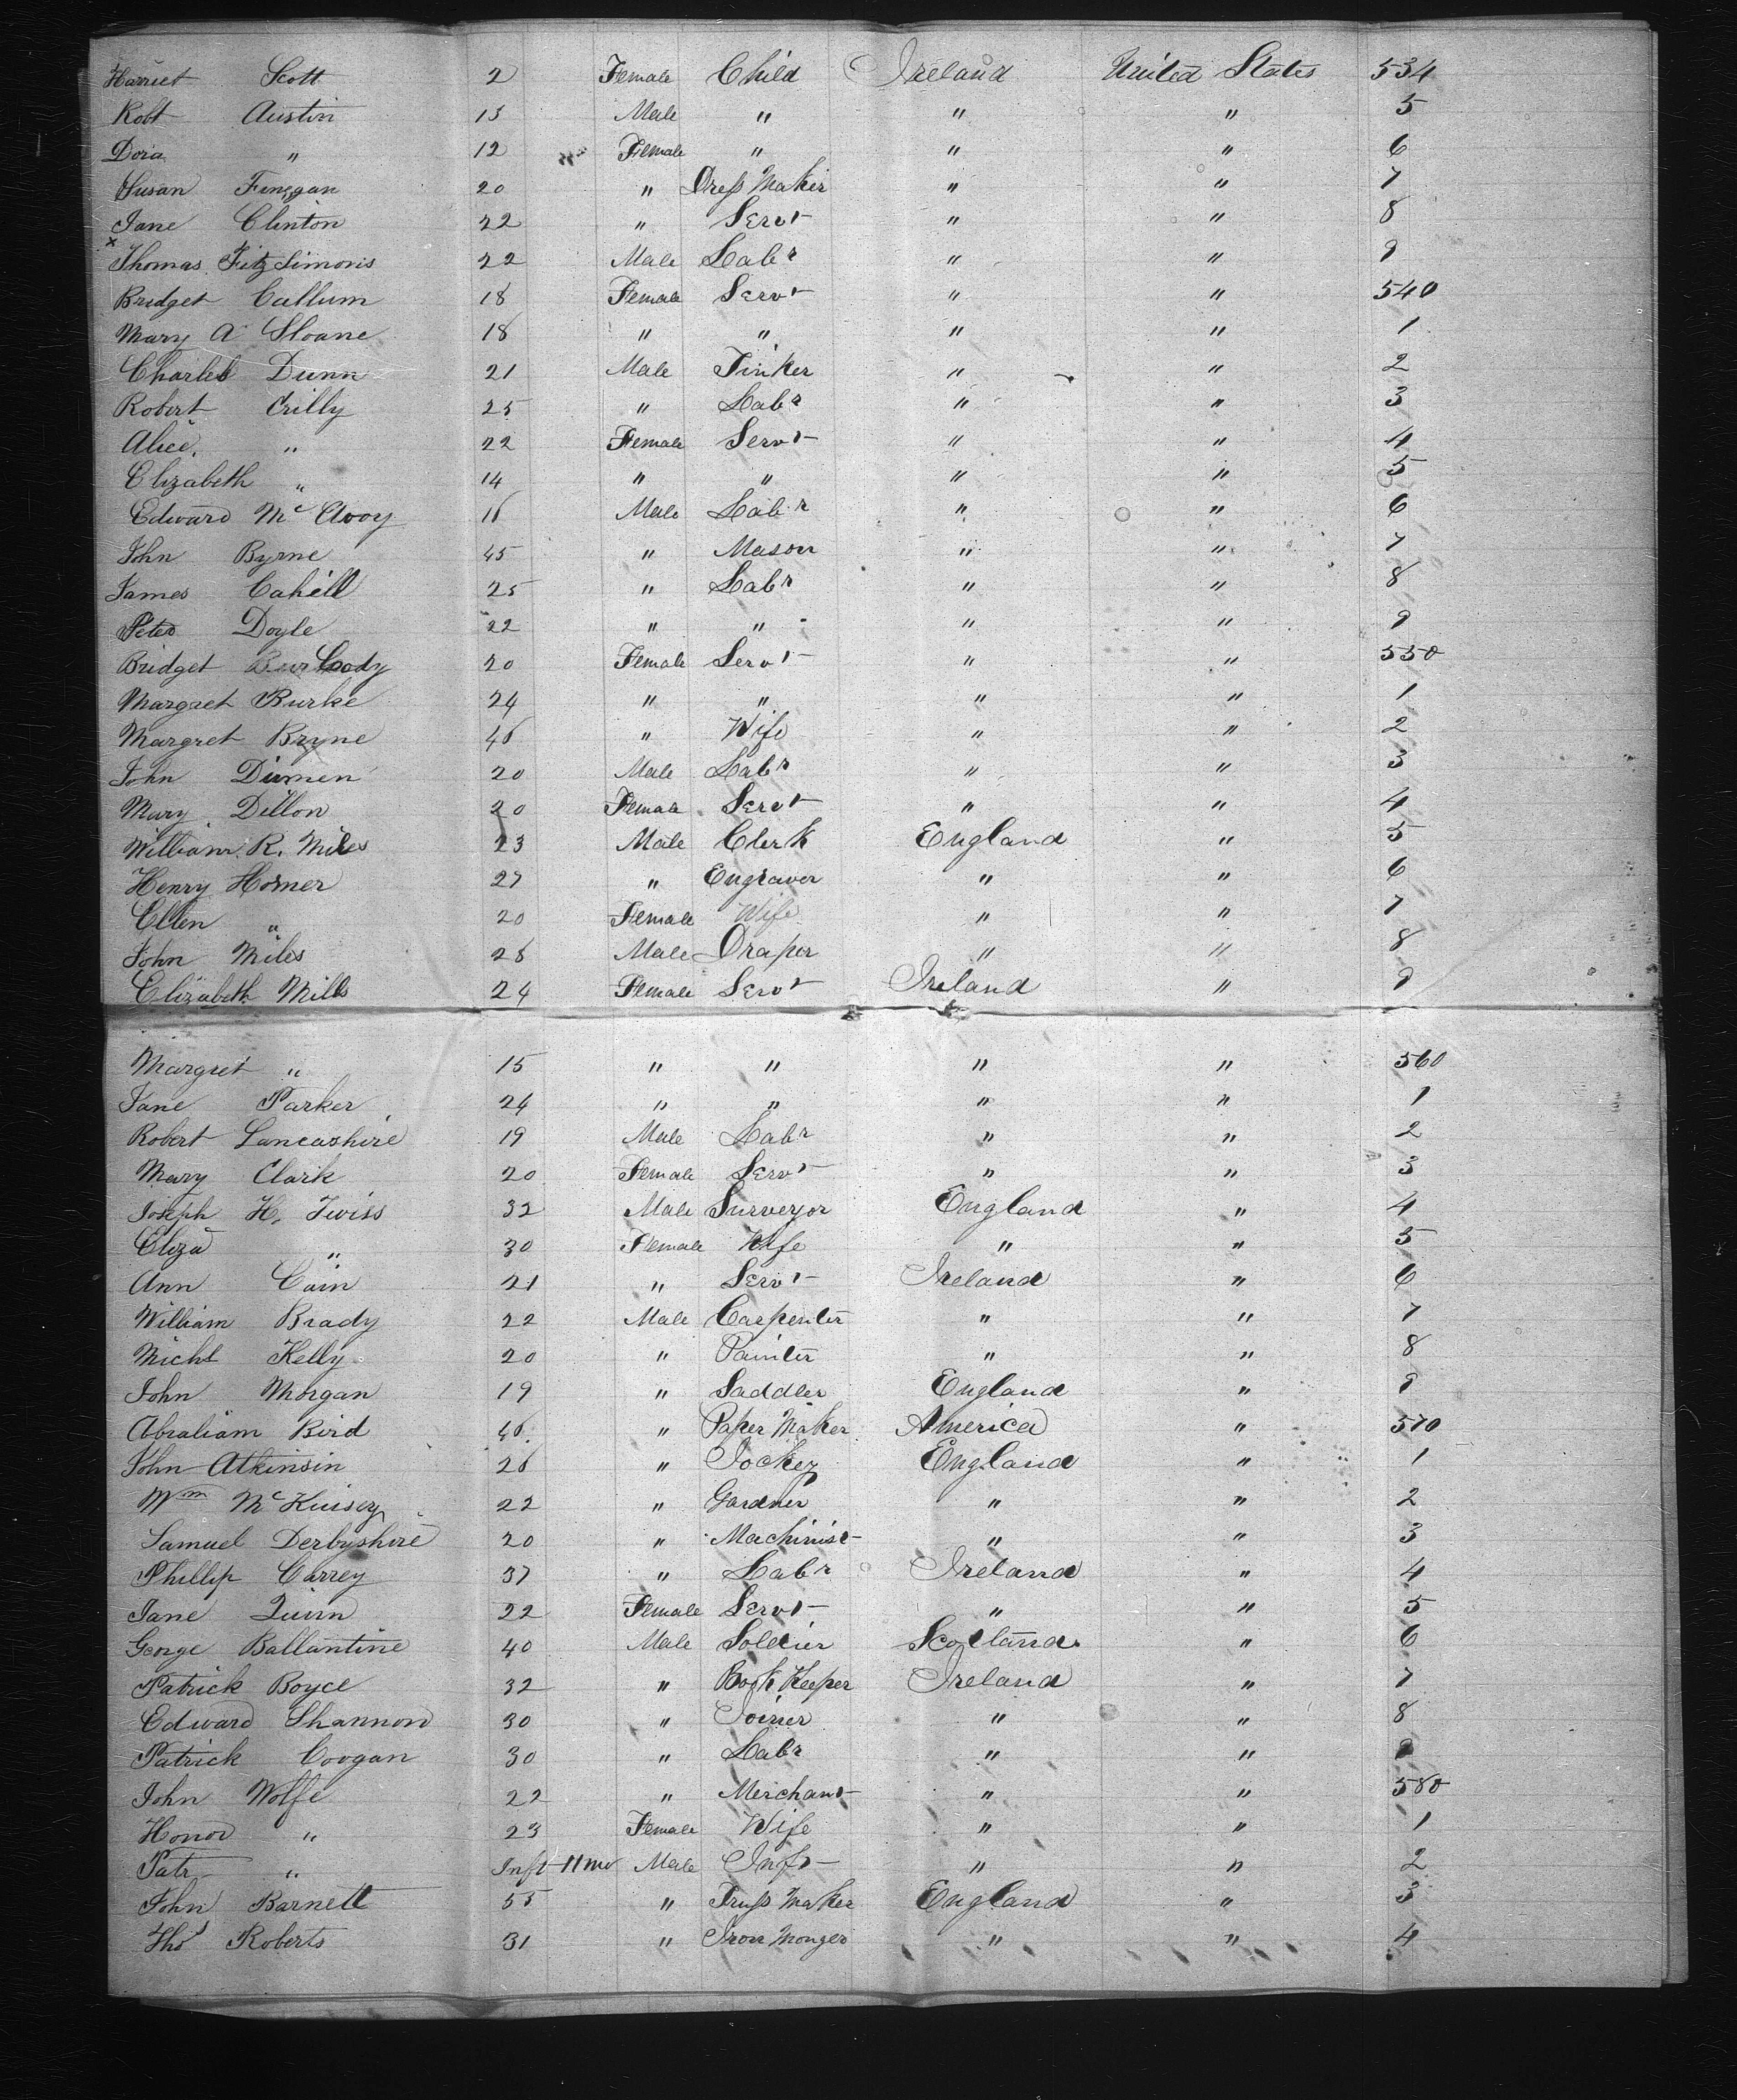 Harriet Scott 2 Female Child Ireland United States 534
Robt Austin 13 Male " " " 5
Dora " 12 Female " " " 6
Susan Finegan 20 " Dress Maker " " 7
Jane Clinton 22 " Servt " " 8
x Thomas FitzSimons 22 Male Labr " " 9
Bridget Callum 18 Female Servt " " 540
Mary A Sloane 18 " " " " 1
Charles Dunn 21 Male Tinker " " 2
Robert Crilly 25 " Labr " " 3
Alice " 22 Female Servt " " 4
Elizabeth " 14 " " " " 5
Edward McAvoy 16 Male Labr " " 6
John Byrne 45 " Mason " " 7
James Cahill 25 " Labr " " 8
Peter Doyle 22 " " " " 9
Bridget Cody 20 Female Servt " " 550
Margret Burke 24 " " " " 1
Margret Bryne 46 " Wife " " 2
John Dimen 20 Male Labr " " 3
Mary Dillon 20 Female Servt " " 4
William R. Miles 23 Male Clerk England " 5
Henry Horner 27 " Engraver " " 6
Ellen " 20 Female Wife " " 7
John Miles 28 Male Draper " " 8
Elizabeth Mills 24 Female Servt Ireland " 9
Margret " 15 " " " " 560
Jane Parker 24 " " " " 1
Robert Lancashire 19 Male Labr " " 2
Mary Clark 20 Female Servt " " 3
Joseph H. Twiss 32 Male Surveyor England " 4
Eliza " 30 Female Wife " " 5
Ann Cain 21 " Servt Ireland " 6
William Brady 22 Male Carpenter " " 7
Michl Kelly 20 " Painter " " 8
John Morgan 19 " Saddler England " 9
Abraham Bird 46 " Paper Maker America " 570
John Atkinsin 26 " Jockey England " 1
Wm McKuisey 22 " Gardner " " 2
Samuel Derbyshire 20 " Machinist " " 3
Phillip Carrey 37 " Labr Ireland " 4
Jane Quinn 22 Female Servt " " 5
George Ballantine 40 Male Soldier Scotland " 6
Patrick Boyce 32 " Book Keeper Ireland " 7
Edward Shannon 30 " Joiner " " 8
Patrick Coogan 30 " Labr " " 9
John Wolfe 22 " Merchant " " 580
Honor " 23 Female Wife " " 1
Patr " Inft 11 mo Male Inft " " 2
John Barnett 55 " Truss Maker England " 3
Thos Roberts 31 " Iron Monger " " 4